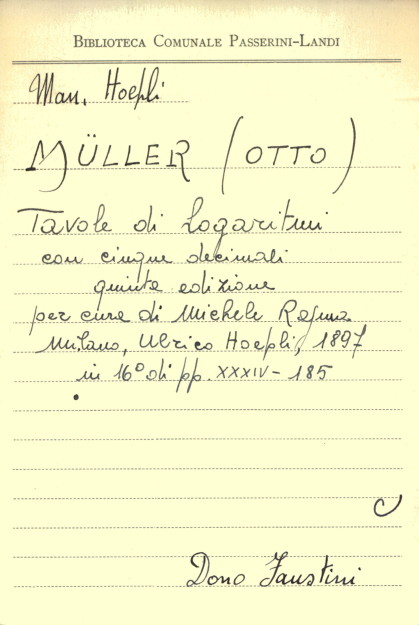 BIBLIOTECA COMUNALE PASSERINI-LANDI
Man. Hoepli
MÜLLER (OTTO)
Tavole di logaritmi
con cinque decimali
quinta edizione
per cura di Michele Rajna
Milano, Ulrico Hoepli, 1897
in 16° di pp. XXXIV - 185
Dono Faustini